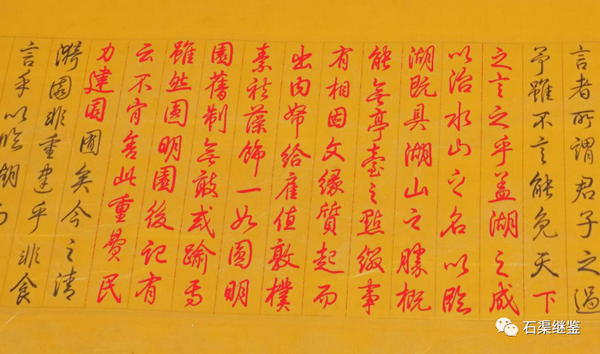 言者所謂君子之過
予雖不言能免天下
之言之乎蓋湖之成
以治水山之名以臨
湖既具湖山之勝概
能無亭臺之點綴事
有相因文緣質起而
出內帑給雇值敦樸
素祛藻飾一如圓明
園舊制無敢或踰焉
雖然圓明園後記有
云不肯舍此重費民
力建園囿矣今之清
漪園非重建乎非食
言乎以臨湖而
石渠继鉴